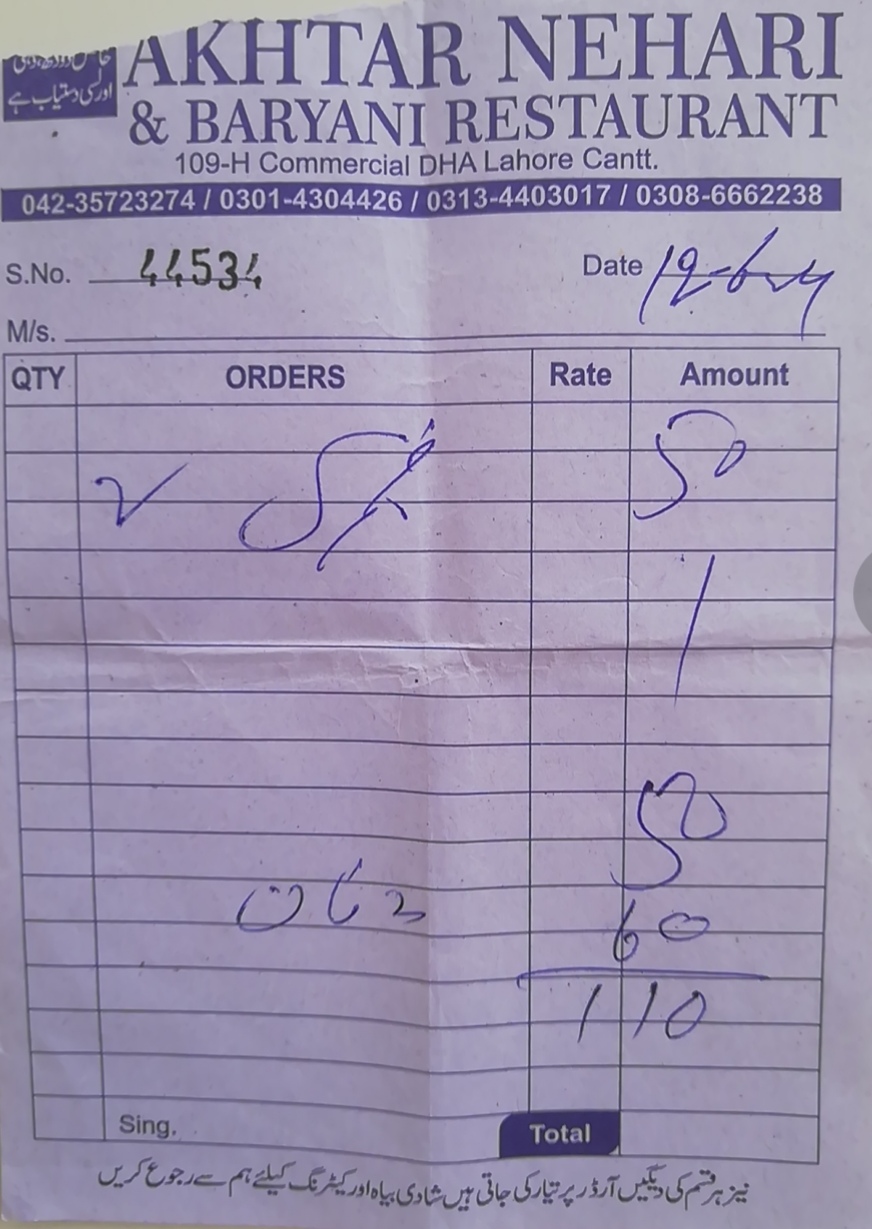 خالص دودھ، دہی
اور لسی دستیاب ہے
AKHTAR NEHARI
& BARYANI RESTAURANT
109-H Commercial DHA Lahore Cantt.
042-35723274 / 0301-4304426 / 0313-4403017 / 0308-6662238
S.No. 44534 Date
M/s.
QTY ORDERS Rate Amount
50
50
60
110
Sing. Total
نیز ہر قسم کی دیگیں آرڈر پر تیار کی جاتی ہیں شادی بیاہ اور کیٹرنگ کیلئے ہم سے رجوع کریں